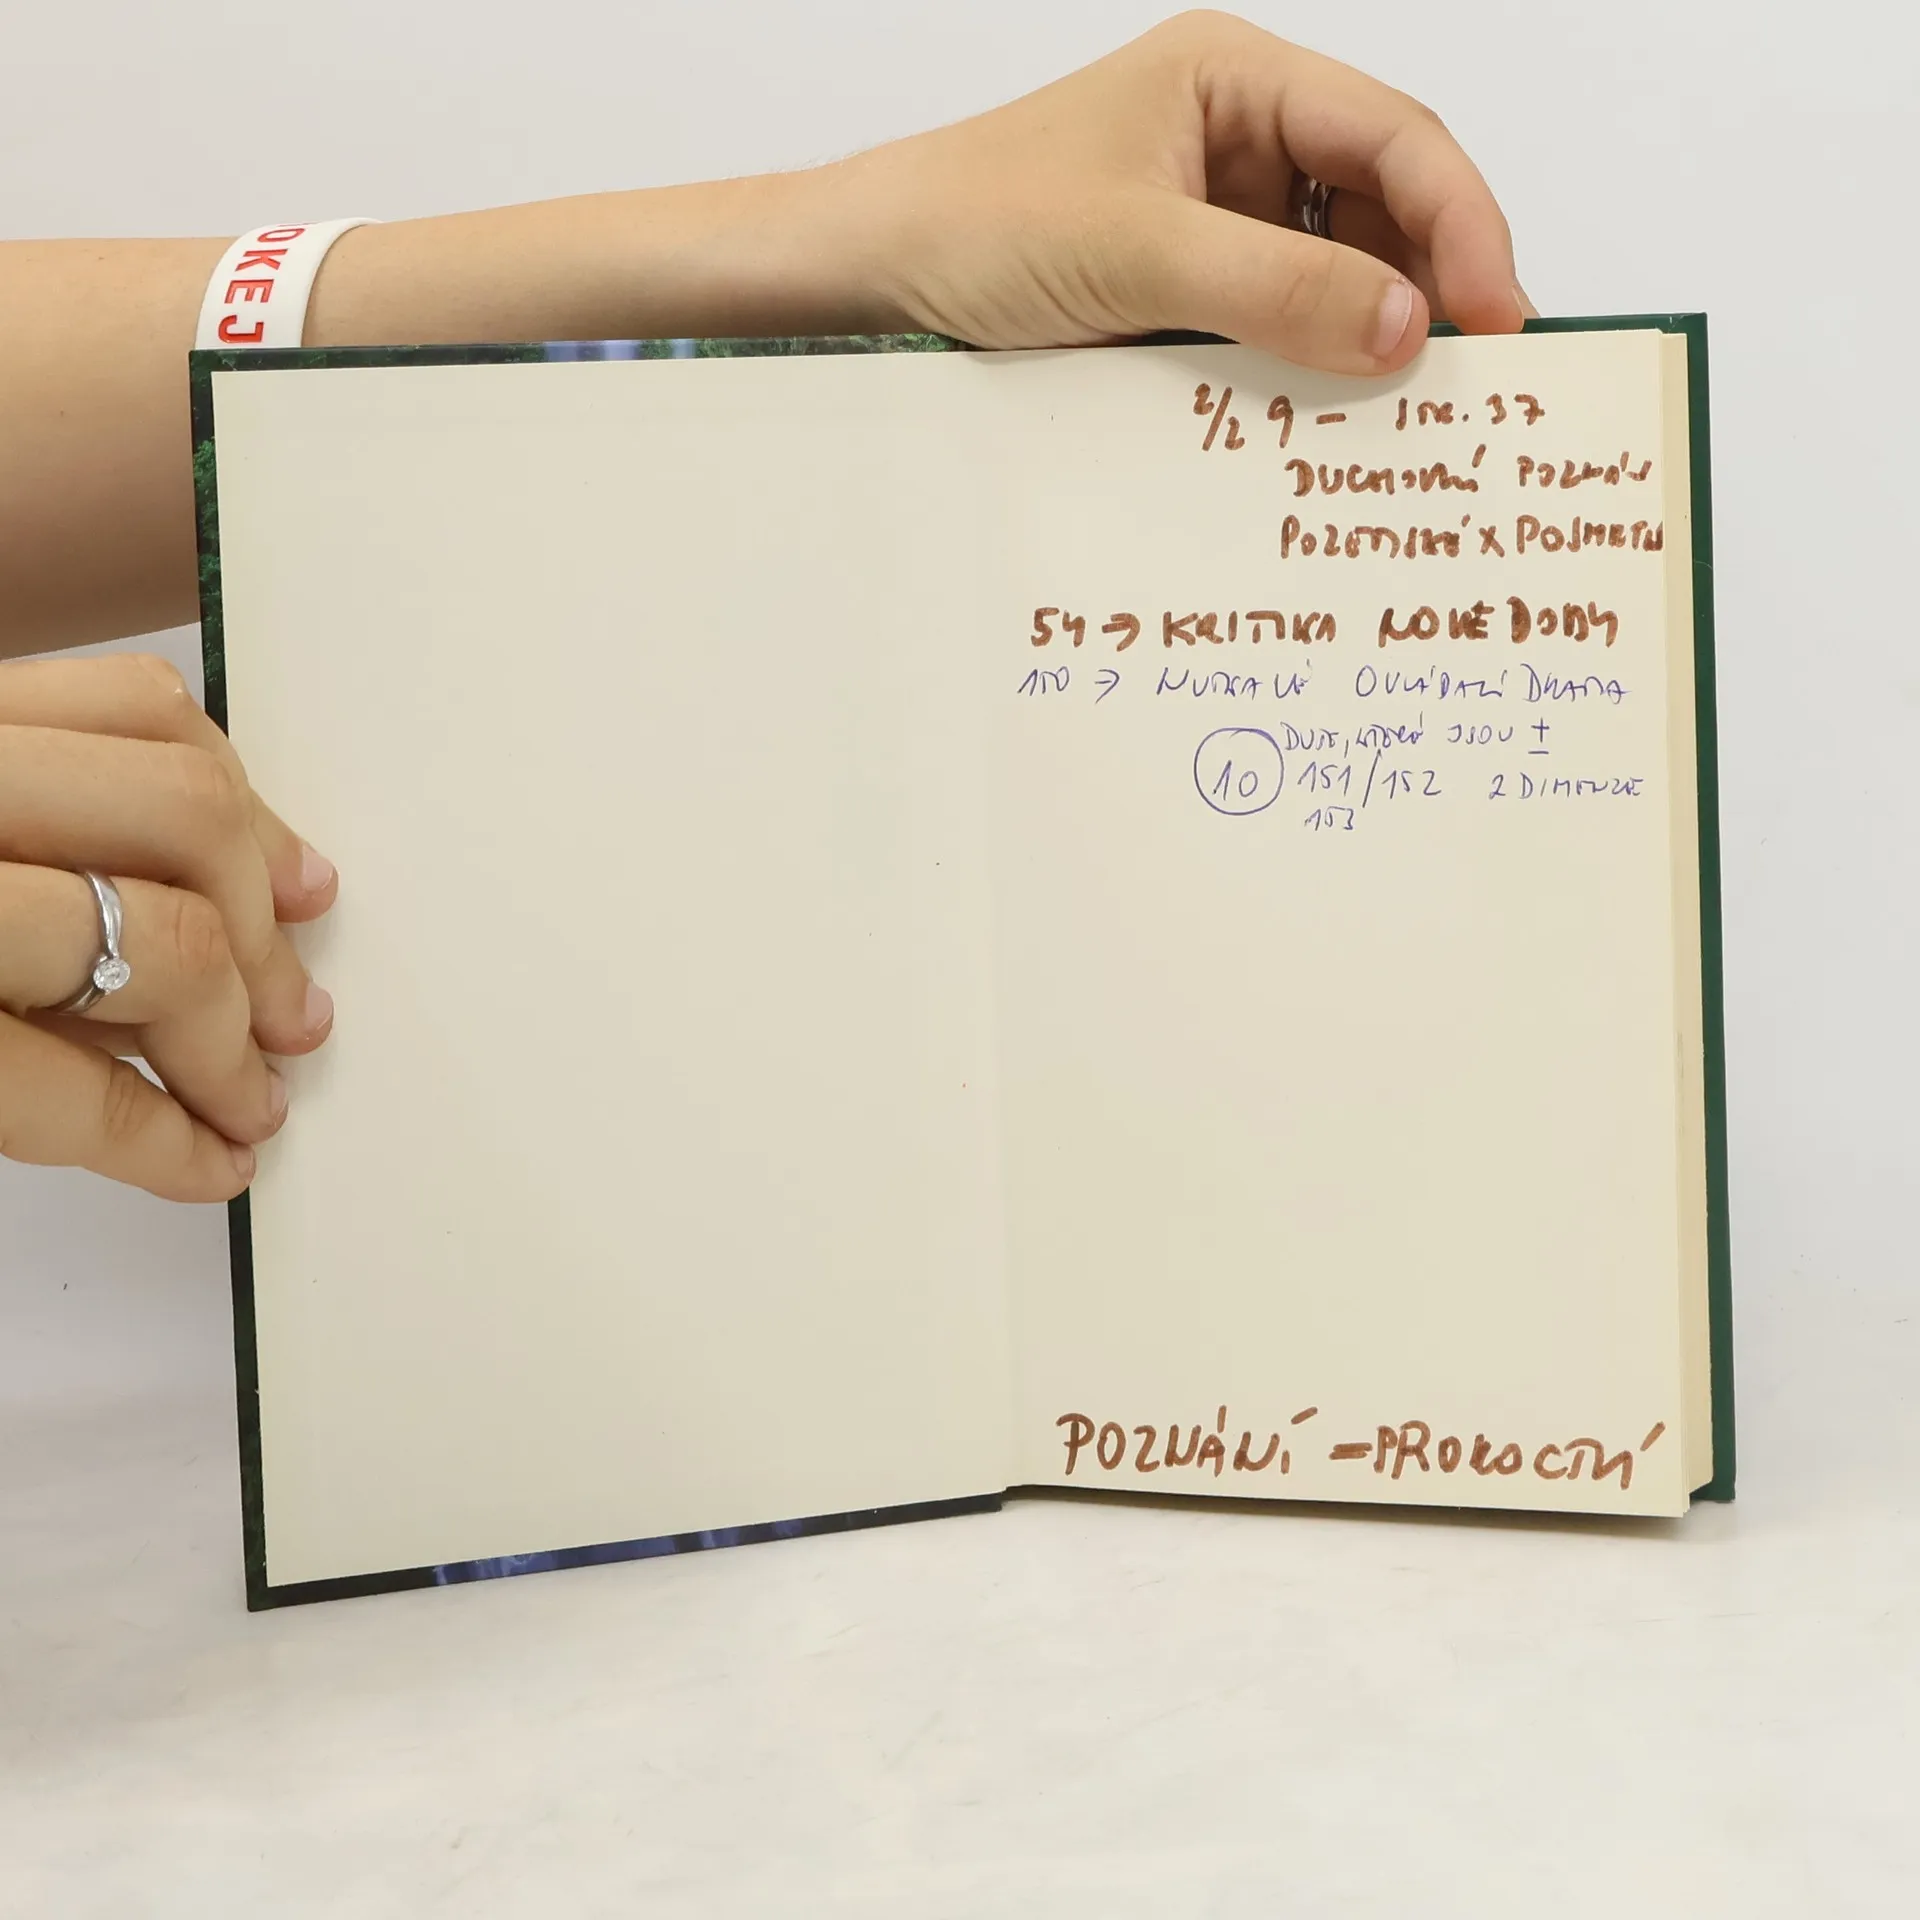 OKEJ
2/2 9 - STR. 37
DUCHOVNÍ POZNÁN
POZEMSKÉ X POSMRTN
54 → KRITIKA NOVÉ DOBY
150 → OVLÁDACÍ DRAMA
DUŠE, KTERÉ JSOU ±
10 151/152 2 DIMENZE
153
POZNÁNÍ = PROROCTVÍ